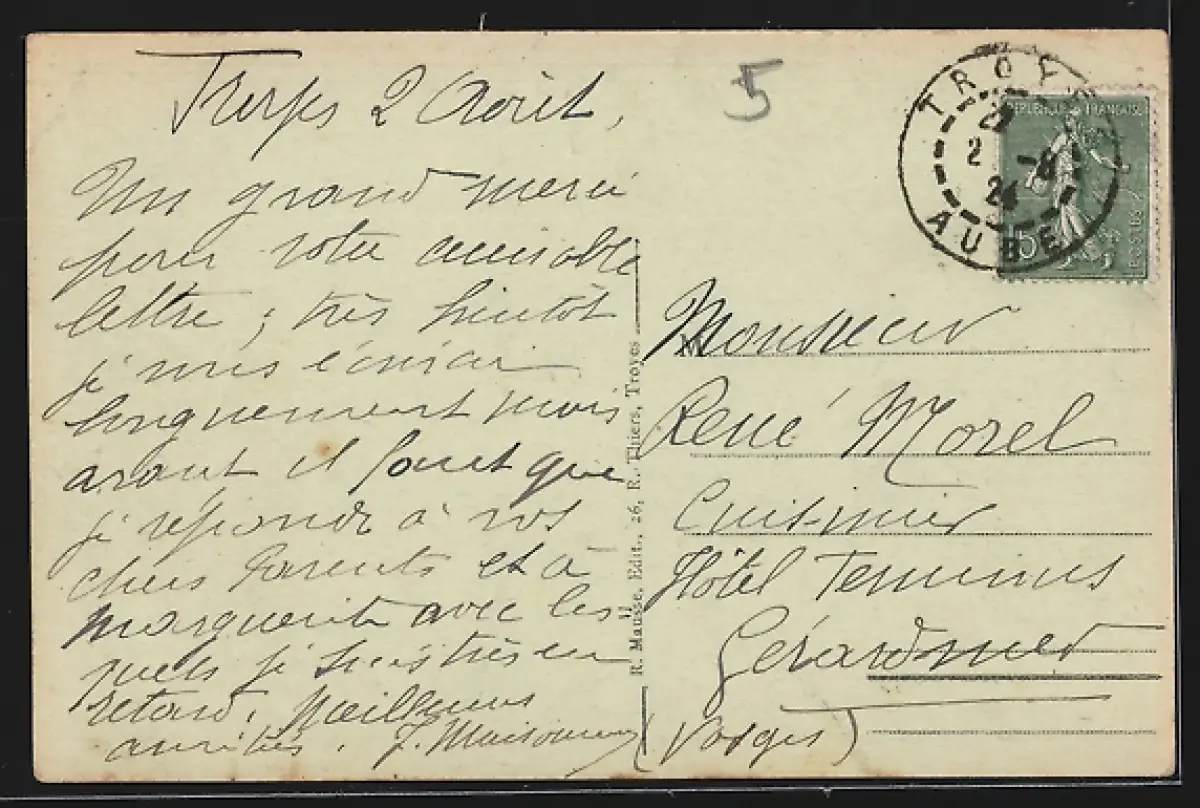 2 Août,
Un grand merci
pour votre aimable
lettre ; très bientôt
je vous écrirai
longuement mais
avant il faut que
je réponde à vos
chers Parents et à
Marguerite avec les
quels je suis très en
retard. Meilleures
amitiés. J.
5
TROYES
2 -8
24
AUBE
REPUBLIQUE FRANÇAISE
15
POSTES
Monsieur
René Morel
Cuisinier
Hôtel Terminus
Gérardmer
(Vosges)
R. Mausse, Edit., 26, R. Thiers, Troyes